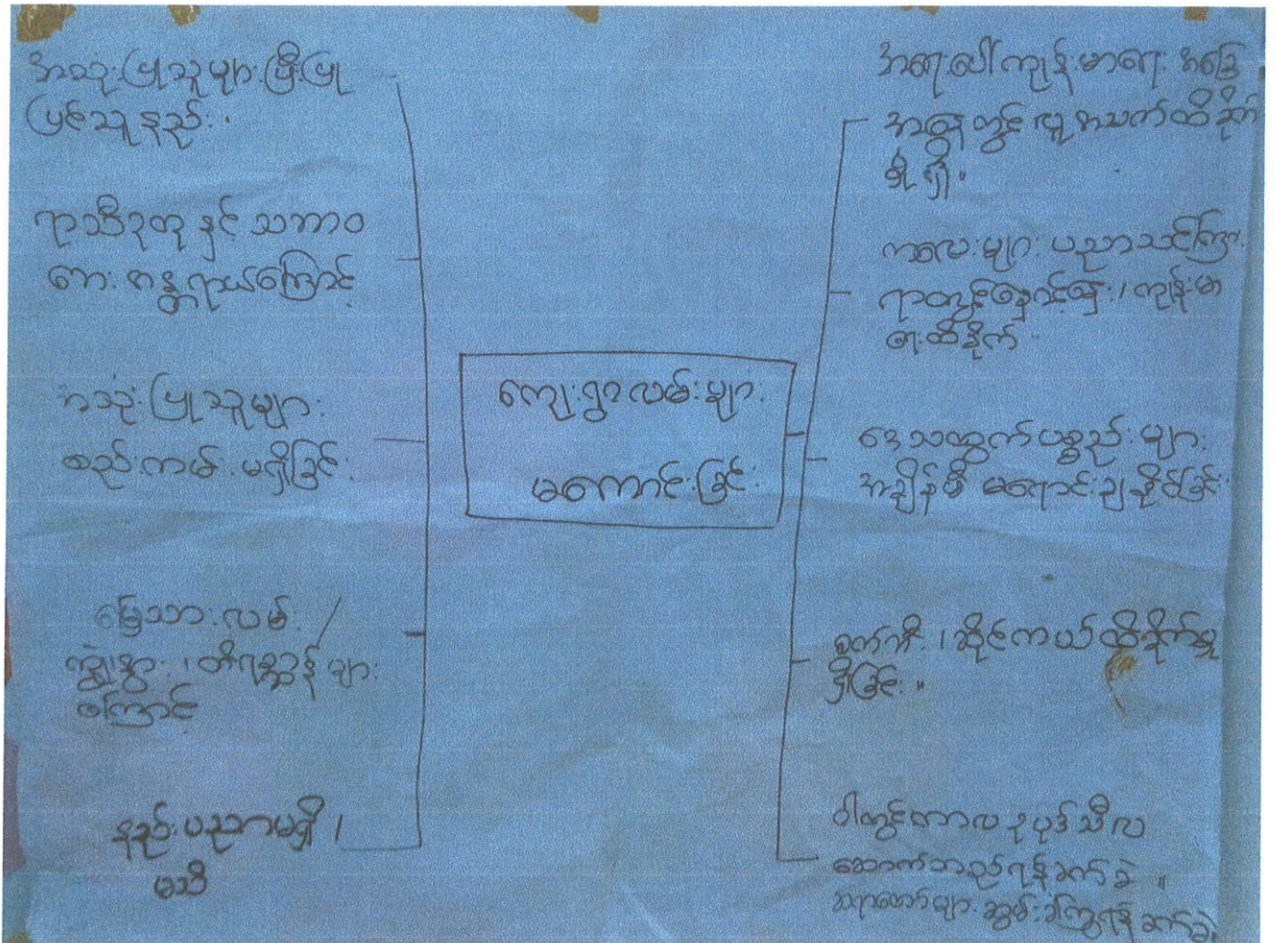 အသုံးပြုသူများပြီး ပြု
ပြင်သူနည်း။
ရာသီဥတု နှင့် သဘာဝ
ဘေးအန္တရာယ်ကြောင့်
အသုံးပြုသူများ
စည်းကမ်းမရှိခြင်း
မြေသားလမ်း /
ကျွဲ၊ နွား၊ တိရစ္ဆာန်များ
ကြောင့်
နည်းပညာမရှိ /
မသိ
ကျေးရွာလမ်းများ
မကောင်းခြင်း
အရေးပေါ်ကျန်းမာရေး အခြေ
အနေတွင် လူ့အသက်ထိခိုက်
မှုရှိ။
ကလေးများ ပညာသင်ကြား
ရာတွင်နှောင့်နှေး၊ ကျန်းမာ
ရေးထိခိုက်
ဒေသထွက်ပစ္စည်းများ
အချိန်မီ မရောင်းချနိုင်ခြင်း
စက်ဘီး၊ ဆိုင်ကယ်ထိခိုက်မှု
ရှိခြင်း။
ဝါတွင်းကာလ ဥပုဒ်သီလ
ဆောက်တည်ရန်ခက်ခဲ။
ဆရာတော်များ ဆွမ်းခံကြွရန် ခက်ခဲ